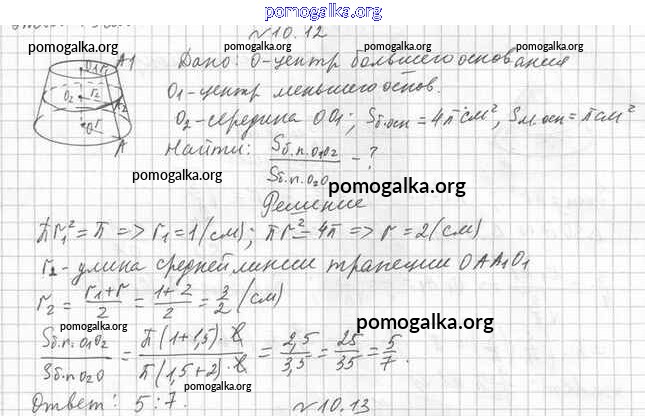 pomogalka.org
№10.12
pomogalka.org pomogalka.org pomogalka.org
A1 O1 r1
Дано: O-центр большего основания
O2 r2 A2
O1-центр меньшего основ.
O2-середина OO1; Sб.осн = 4π см², Sм.осн = π см²
O r A
Найти: Sб.п.O1O2 / Sб.п.O2O - ?
pomogalka.org
pomogalka.org
Решение
πr1² = π => r1 = 1(см); πr² = 4π => r = 2(см)
r2 - длина средней линии трапеции OAA1O1
r2 = (r1+r)/2 = (1+2)/2 = 3/2 (см)
pomogalka.org
pomogalka.org
Sб.п.O1O2 / Sб.п.O2O = π(1+1,5)·l / π(1,5+2)·l = 2,5/3,5 = 25/35 = 5/7.
pomogalka.org
Ответ: 5:7.
№10.13
pomogalka.org